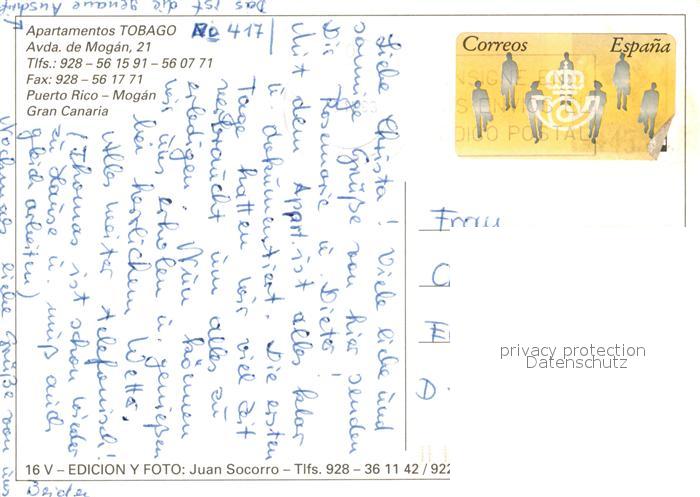 Das ist die genaue Anschrift
Apartamentos TOBAGO No 417
Avda. de Mogán, 21
Tlfs.: 928 – 56 15 91 – 56 07 71
Fax: 928 – 56 17 71
Puerto Rico – Mogán
Gran Canaria
Correos España
CONSIGNE EN
CODIGO POSTAL
Liebe Christa! Viele liebe und
sonnige Grüße von hier senden
Dir Rosemarie u. Dieter!
Mit dem Appart. ist alles klar
u. dokumentiert. Die ersten
Tage hatten wir viel Zeit
verbraucht um alles zu
erledigen. Nun können
wir uns erholen u. genießen
bei herrlichem Wetter.
Alles weiter telefonisch!
(Thomas ist schon wieder
zu Hause u. muß auch
gleich arbeiten)
Nochmals liebe Grüße von uns
Beiden
Frau
privacy protection
Datenschutz
16 V – EDICION Y FOTO: Juan Socorro – Tlfs. 928 – 36 11 42 / 922